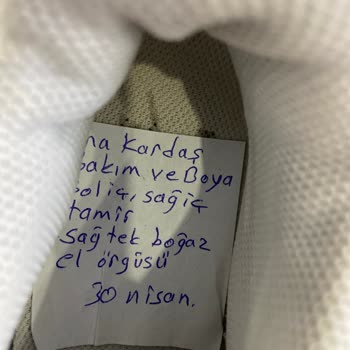 na Kardaş
bakım ve Boya
sol iç, sağ iç
tamir
sağ tek boğaz
el örgüsü
30 nisan.